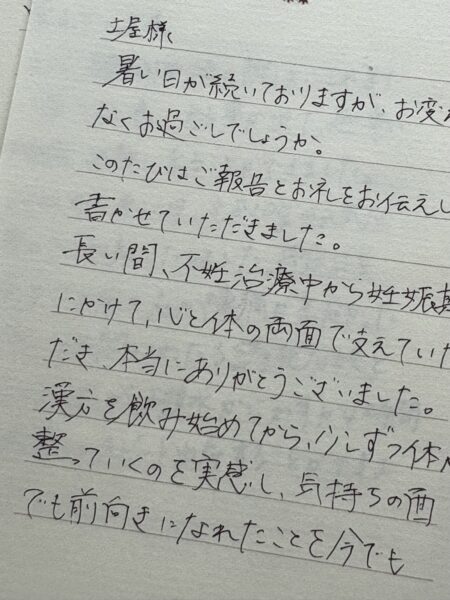 土屋様
暑い日が続いておりますが、お変わ
なくお過ごしでしょうか。
このたびはご報告とお礼をお伝えし
書かせていただきました。
長い間、不妊治療中から妊娠期
にかけて、心と体の両面で支えていた
だき、本当にありがとうございました。
漢方を飲み始めてから、少しずつ体
整っていくのを実感し、気持ちの面
でも前向きになれたことを今でも